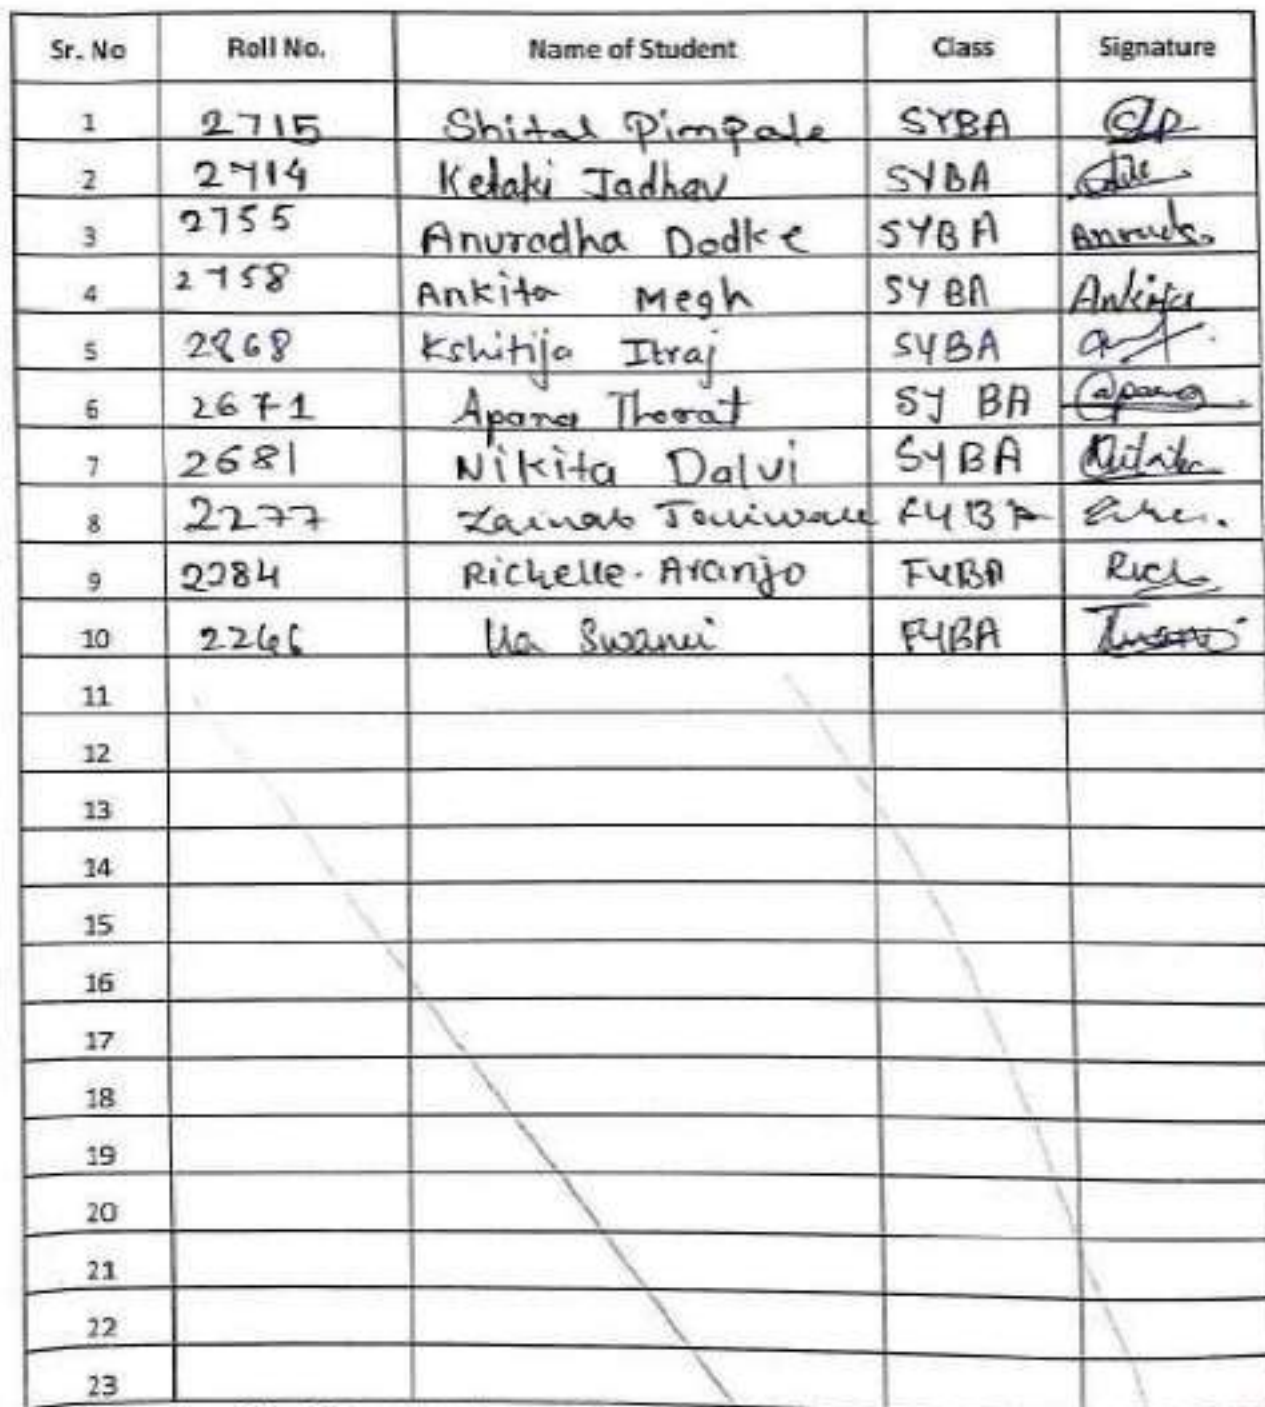 Sr. No Roll No. Name of Student Class Signature
1 2715 Shital Pimpale SYBA
2 2714 Ketaki Jadhav SYBA
3 2755 Anuradha Dodke SYBA
4 2758 Ankita Megh SYBA Ankita
5 2868 Kshitija Itraj SYBA
6 2671 Aparna Thorat SY BA
7 2681 Nikita Dalvi SYBA
8 2277 Zainab FYBA
9 2284 Richelle. Aranjo FYBA Rich
10 2266 Swami FYBA
11
12
13
14
15
16
17
18
19
20
21
22
23